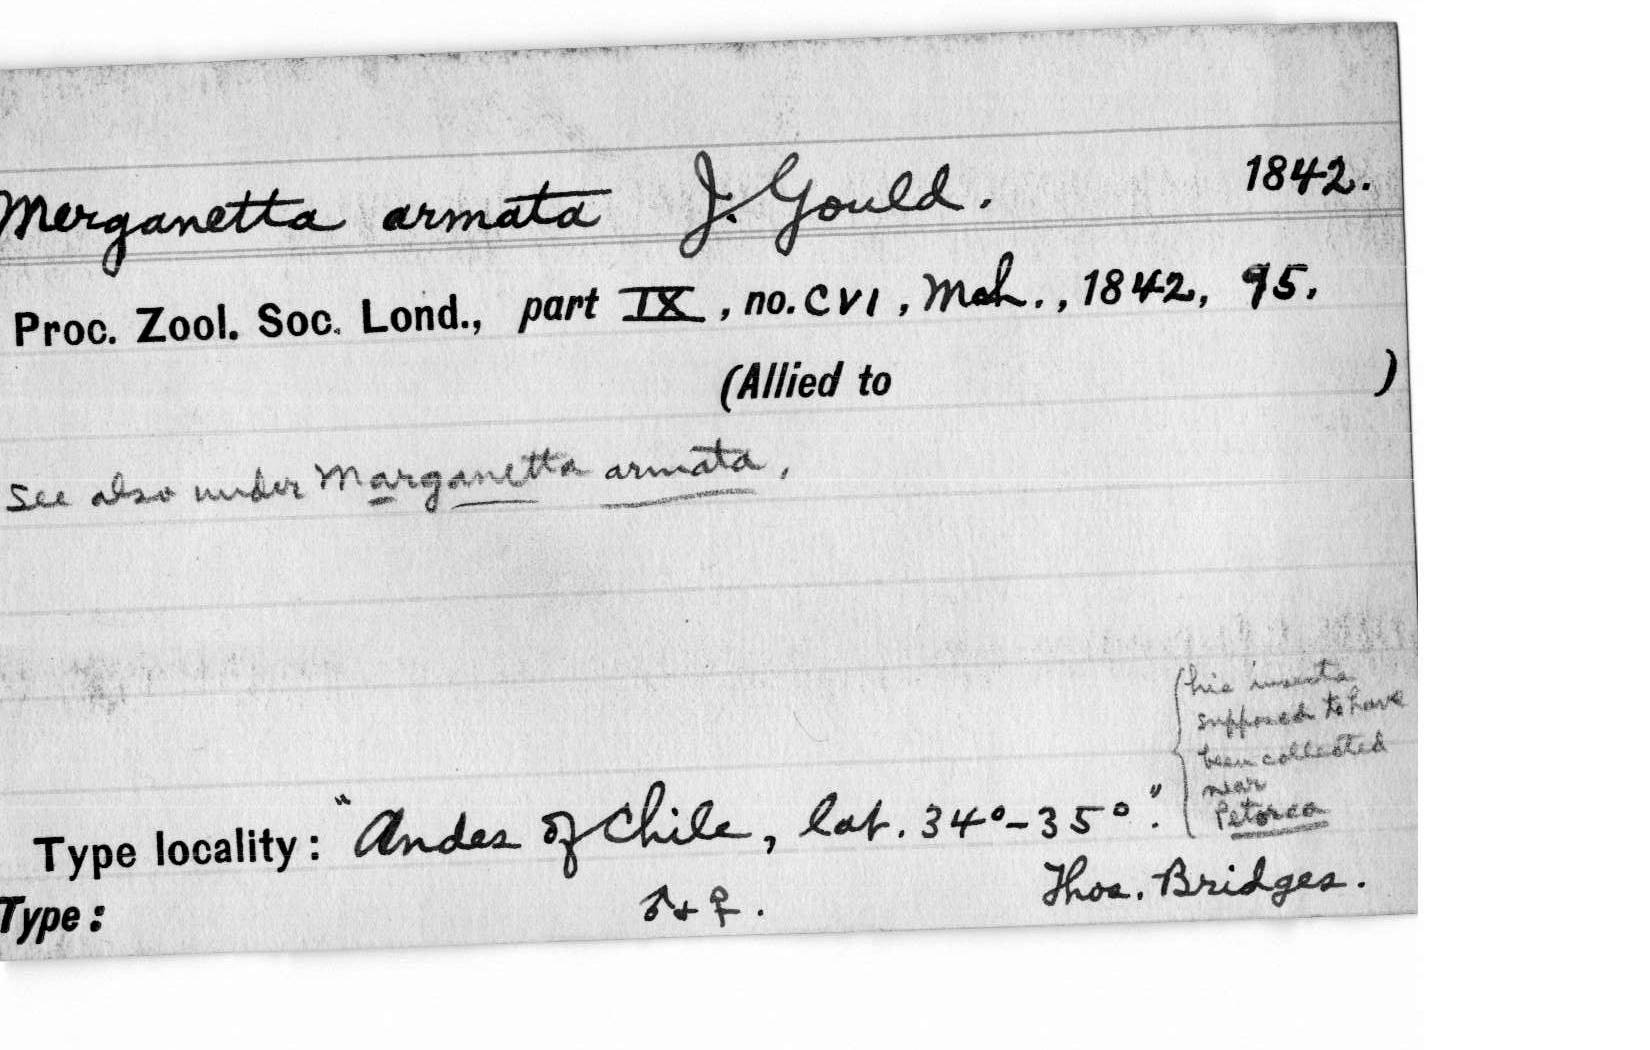 Merganetta armata J. Gould. 1842.
Proc. Zool. Soc. Lond., part IX, no. CVI, Mch., 1842, 95.
(Allied to )
See also under Marganetta armata,
his insects
supposed to have
been collected
near
Petorca
Type locality: "Andes of Chile, lat. 34°-35°."
Type: ♂ + ♀. Thos. Bridges.